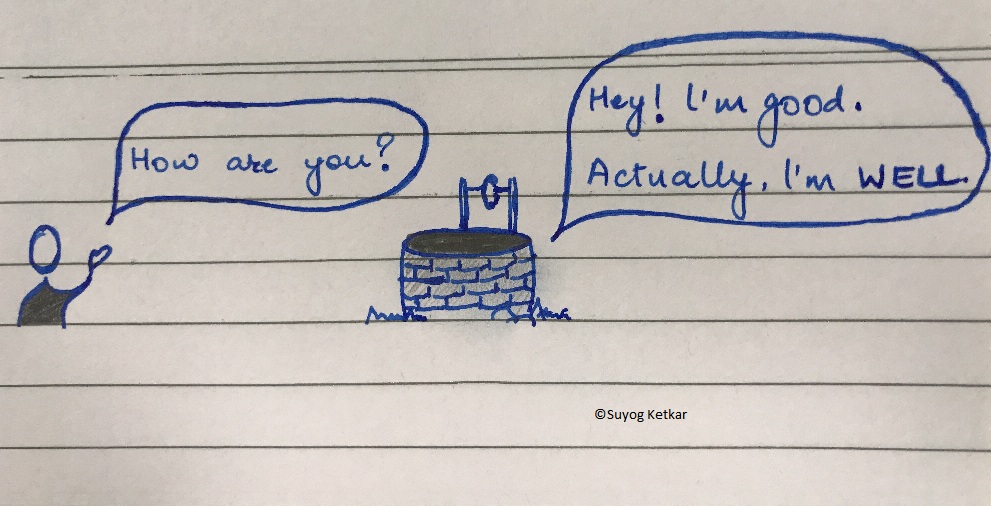 How are you?
Hey! I'm good.
Actually, I'm WELL.
©Suyog Ketkar